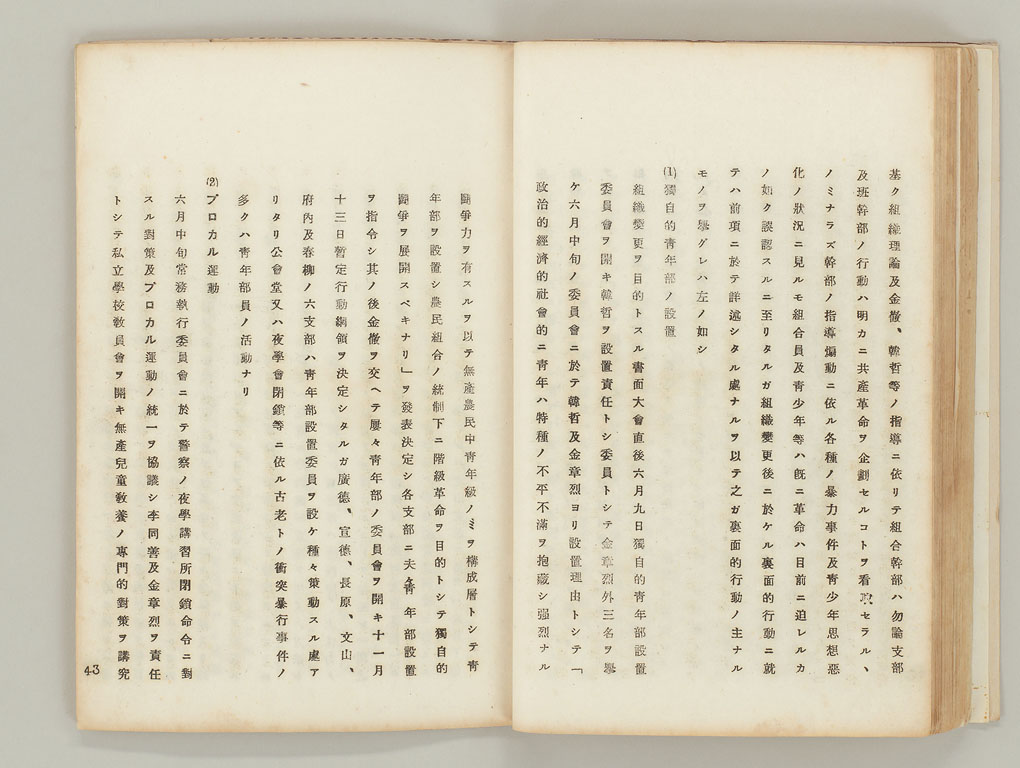 基ク組織理論及金㒞、韓哲等ノ指導ニ依リテ組合幹部ハ勿論支部
及班幹部ノ行動ハ明カニ共產革命ヲ企劃セルコトヲ看取セラル、
ノミナラズ幹部ノ指導煽動ニ依ル各種ノ暴力事件及靑少年思想惡
化ノ狀況ニ見ルモ組合員及靑少年等ハ旣ニ革命ハ目前ニ迫レルカ
ノ如ク誤認スルニ至リタルガ組織變更後ニ於ケル裏面的行動ニ就
テハ前項ニ於テ詳述シタル處ナルヲ以テ之ガ裏面的行動ノ主ナル
モノヲ擧グレハ左ノ如シ
(1)獨自的靑年部ノ設置
組織變更ヲ目的トスル書面大會直後六月九日獨自的靑年部設置
委員會ヲ開キ韓哲ヲ設置責任トシ委員トシテ金章烈外三名ヲ擧
ケ六月中旬ノ委員會ニ於テ韓哲及金章烈ヨリ設置理由トシテ「
政治的經濟的社會的ニ靑年ハ特種ノ不平不滿ヲ抱藏シ强烈ナル
鬪爭力ヲ有スルヲ以テ無產農民中靑年級ノミヲ構成層トシテ靑
年部ヲ設置シ農民組合ノ統制下ニ階級革命ヲ目的トシテ獨自的
鬪爭ヲ展開スベキナリ」ヲ發表決定シ各支部ニ夫々靑年部設置
ヲ指令シ其ノ後金㒞ヲ交ヘテ屢々靑年部ノ委員會ヲ開キ十一月
十三日暫定行動綱領ヲ決定シタルガ廣德、宣德、長原、文山、
府內及春柳ノ六支部ハ靑年部設置委員ヲ設ケ種々策動スル處ア
リタリ公會堂又ハ夜學會閉鎖等ニ依ル古老トノ衝突暴行事件ノ
多クハ靑年部員ノ活動ナリ
(2)プロカル運動
六月中旬常務執行委員會ニ於テ警察ノ夜學講習所閉鎖命令ニ對
スル對策及プロカル運動ノ統一ヲ協議シ李同善及金章烈ヲ責任
トシテ私立學校敎員會ヲ開キ無產兒童敎養ノ專門的對策ヲ講究
43